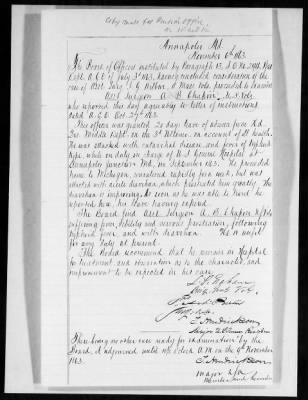 Copy made for Pension Office
Annapolis Md.
November 6th 1863.
The Board of Officers instituted by Paragraph 13, S.O. No. 291, War
Dept. A.G.O. of July 3rd 1863, having concluded consideration of the
case of Asst. Surg. J. G. Wilbur, Mass. Vols. proceeded to examine
Asst. Surgeon A. B. Chapin, Vols.
who reported this day agreeably to letter of instructions
dated A.G.O. Oct. 27th 1863.
This officer was granted 20 days leave of absence from Hd.
Qrs. Middle Dept. on the 3rd ultimo, on account of ill health.
He was attacked with catarrhal disease, and fever of typhoid
type, while on duty in charge of U.S. General Hospital at
Annapolis Junction Md., in September 1863. He proceeded
home to Michigan, convalesced rapidly for a week, but was
affected with acute diarrhoea, which prostrated him greatly. The
diarrhoea is improving. As soon as he was able to travel he
reported here, his leave having expired.
The Board find Asst. Surgeon A. B. Chapin U.S. Vols.
suffering from debility and nervous prostration, following
typhoid fever, and with diarrhoea. He is unfit
for any duty at present.
The Board recommend that he remain in Hospital
for treatment and observation as to the character, and
improvement to be expected in his case.
C. Hendrickson
There being no other case ready for examination by the
Board, it adjourned until 10 o'clock A.M. on the 9th November
1863.
C. Hendrickson
Major
Member and Recorder